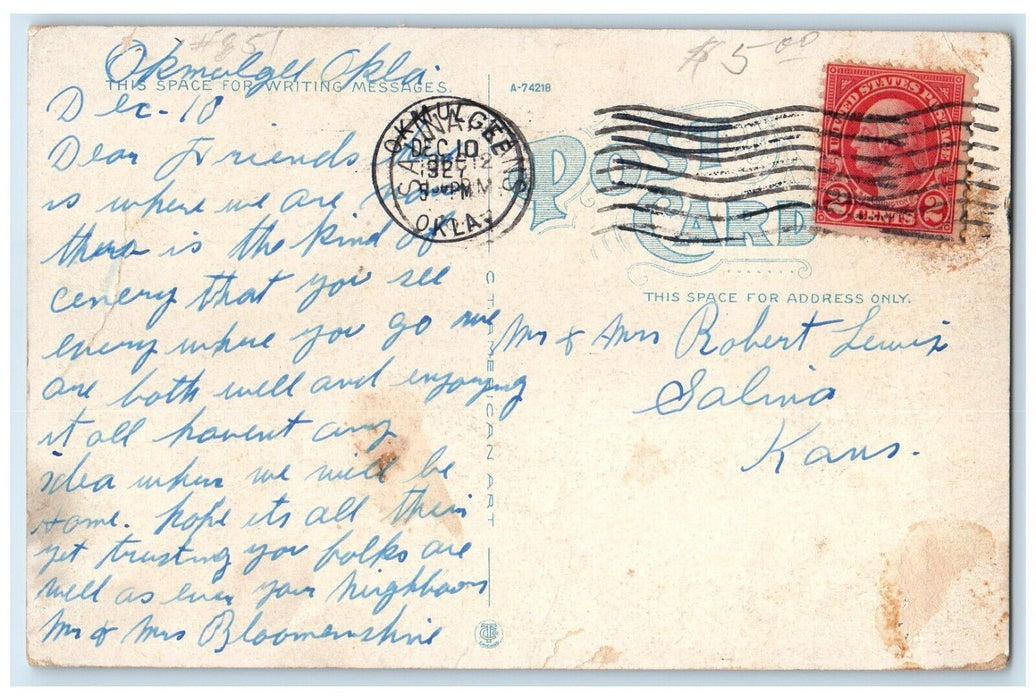 #851
Okmulgee Okla.
THIS SPACE FOR WRITING MESSAGES.
Dec - 10
Dear Friends
is where we are
there is the kind of
cenery that you see
every where you go we
are both well and enjoying
it all havent any
idea when we will be
home. hope its all thier
yet trusting you folks are
well as ever your Neighbours
Mr & Mrs Bloomenshine
A-74218
$5.00
OKMULGEE
DEC 10
1927
OKLA
POST CARD
UNITED STATES POSTAGE
2 CENTS 2
THIS SPACE FOR ADDRESS ONLY.
Mr & Mrs Robert Lewis
Salina
Kans.
C T AMERICAN ART